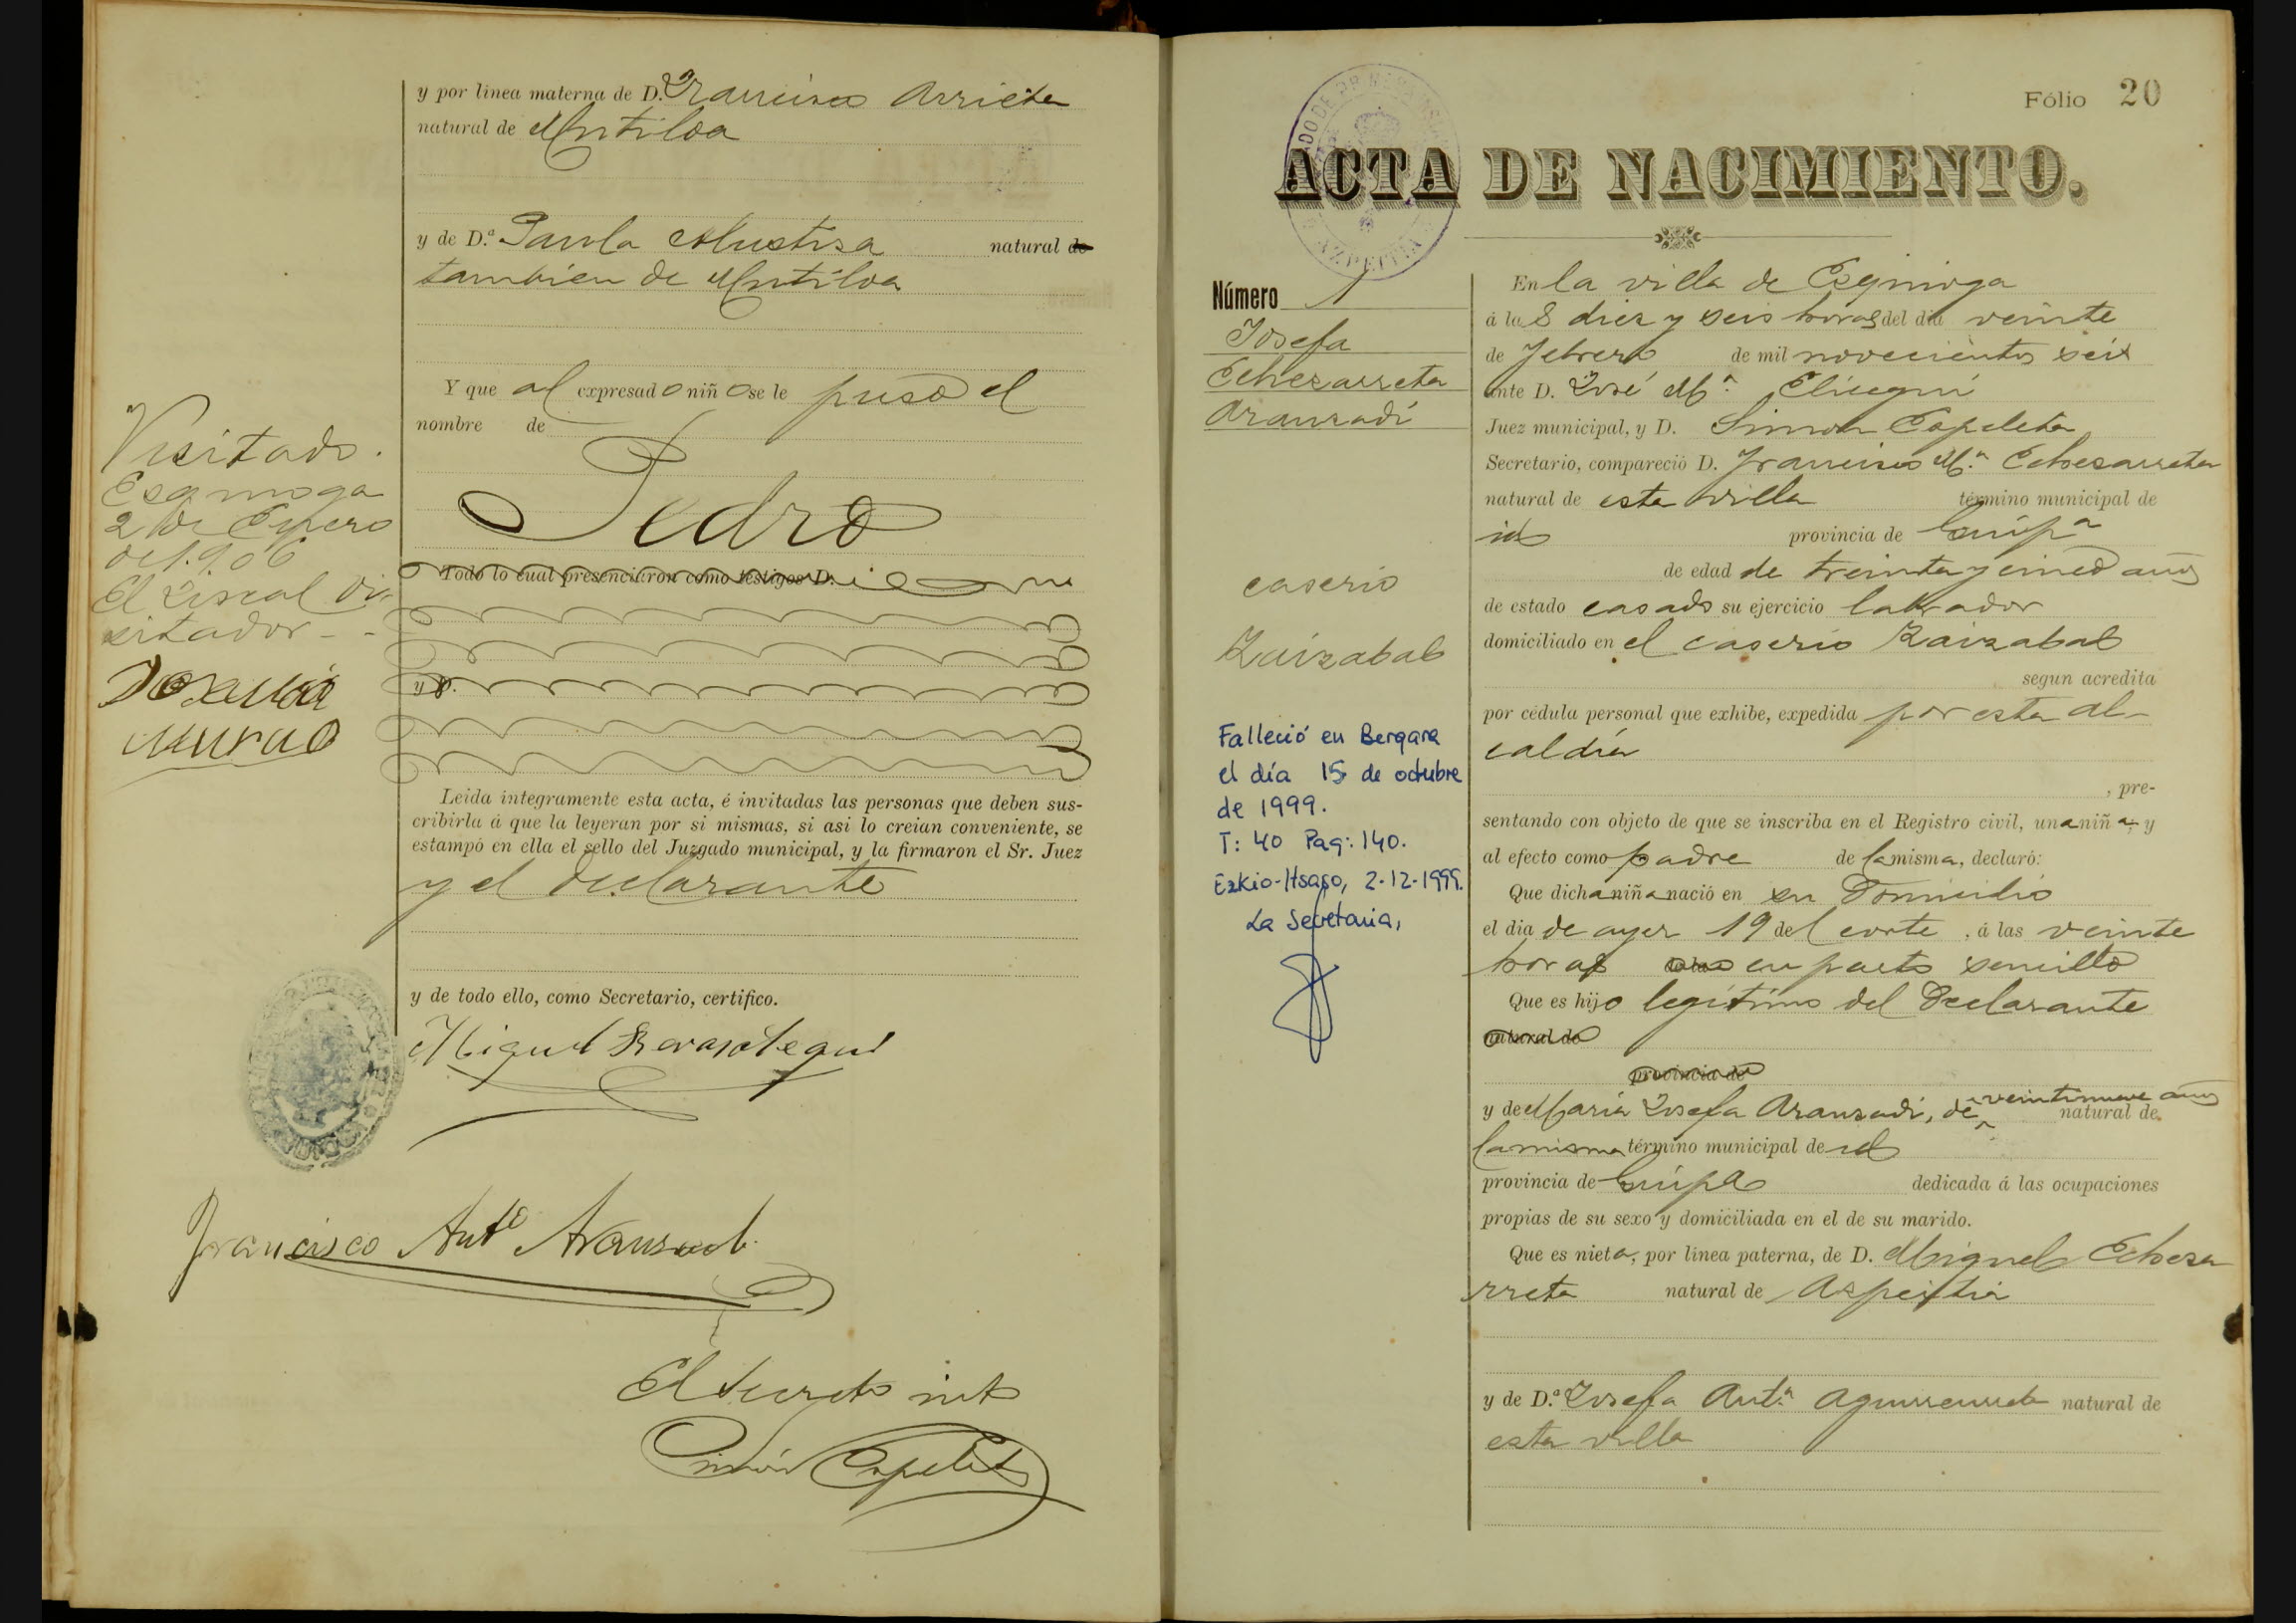 y por linea materna de D. Francisco Arrieta
natural de Mutiloa
y de D.ª Paula Mustiza natural de
tambien de Mutiloa
Y que al expresado niño se le puso el
nombre de
Pedro
Todo lo cual presenciaron como testigos D.
y D.
Leida integramente esta acta, é invitadas las personas que deben sus-
cribirla á que la leyeran por si mismas, si asi lo creian conveniente, se
estampó en ella el sello del Juzgado municipal, y la firmaron el Sr. Juez
y el declarante
y de todo ello, como Secretario, certifico.
Miguel Berasategui
Francisco Antº Aranzadi
El Secretº intº
Simón Capelete
Visitado.
Ezquioga
2 de Enero
de 1.906
El Fiscal Vi-
sitador - -
Fólio 20
ACTA DE NACIMIENTO.
AZPEITIA
Número 1
Josefa
Echezarreta
Aranzadi
caserio
Kaizabal
Falleció en Bergara
el día 15 de octubre
de 1999.
T: 40 Pag: 140.
Ezkio-Itsaso, 2-12-1999.
La Secretaria,
En la villa de Ezquioga
á las diez y seis horas del dia veinte
de Febrero de mil novecientos seis
ante D. José Mª.
Juez municipal, y D. Simon Capelete
Secretario, compareció D. Francisco Mª. Echezarreta
natural de esta villa término municipal de
id provincia de Guipª
de edad de treinta y cinco años
de estado casado su ejercicio labrador
domiciliado en el caserio Kaizabal
segun acredita
por cédula personal que exhibe, expedida por esta al-
caldía
, pre-
sentando con objeto de que se inscriba en el Registro civil, una niña, y
al efecto como padre de la misma, declaró:
Que dicha niña nació en su domicilio
el dia de ayer 19 del corte , á las veinte
horas en parto sencillo
Que es hijo legítimo del Declarante
natural de
provincia de
y de Maria Josefa Aranzadi, de veintinueve años natural de
la misma término municipal de id
provincia de Guipª dedicada á las ocupaciones
propias de su sexo y domiciliada en el de su marido.
Que es nieta, por linea paterna, de D. Miguel Echeza
rreta natural de Azpeitia
y de D.ª Josefa Antª Aguirreurreta natural de
esta villa